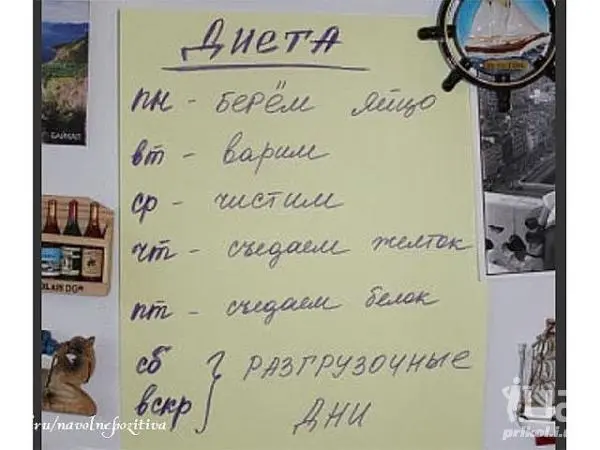 ДИЕТА
пн - берём яйцо
вт - варим
ср - чистим
чт - съедаем желток
пт - съедаем белок
сб } РАЗГРУЗОЧНЫЕ
вскр } ДНИ
БАЙКАЛ
ru/navolnepozitiva